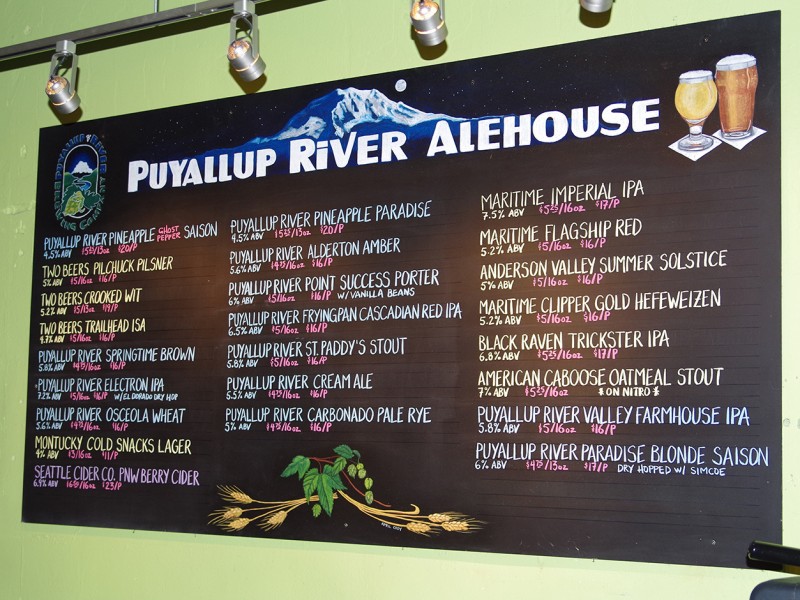 PUYALLUP RIVER ALEHOUSE
PUYALLUP RIVER
BREWING COMPANY
PUYALLUP RIVER PINEAPPLE GHOST PEPPER SAISON
4.5% ABV $5.25/13oz $20/P
TWO BEERS PILCHUCK PILSNER
5% ABV $5/16oz $16/P
TWO BEERS CROOKED WIT
5.2% ABV $5/13oz $19/P
TWO BEERS TRAILHEAD ISA
4.7% ABV $5/16oz $16/P
PUYALLUP RIVER SPRINGTIME BROWN
5.8% ABV $4.75/16oz $16/P
PUYALLUP RIVER ELECTRON IPA
7.2% ABV $5/16oz $16/P W/EL DORADO DRY HOP
PUYALLUP RIVER OSCEOLA WHEAT
5.6% ABV $4.75/16oz $16/P
MONTUCKY COLD SNACKS LAGER
4% ABV $3/16oz $11/P
SEATTLE CIDER CO. PNW BERRY CIDER
6.9% ABV $6.25/16oz $23/P
PUYALLUP RIVER PINEAPPLE PARADISE
4.5% ABV $5.25/13oz $20/P
PUYALLUP RIVER ALDERTON AMBER
5.6% ABV $4.75/16oz $16/P
PUYALLUP RIVER POINT SUCCESS PORTER
6% ABV $5/16oz $16/P W/VANILLA BEANS
PUYALLUP RIVER FRYINGPAN CASCADIAN RED IPA
6.5% ABV $5/16oz $16/P
PUYALLUP RIVER ST. PADDY'S STOUT
5.8% ABV $5/16oz $16/P
PUYALLUP RIVER CREAM ALE
5.5% ABV $4.75/16oz $16/P
PUYALLUP RIVER CARBONADO PALE RYE
5% ABV $4.75/16oz $16/P
MARITIME IMPERIAL IPA
7.5% ABV $5.25/16oz $17/P
MARITIME FLAGSHIP RED
5.2% ABV $5/16oz $16/P
ANDERSON VALLEY SUMMER SOLSTICE
5% ABV $5/16oz $16/P
MARITIME CLIPPER GOLD HEFEWEIZEN
5.2% ABV $5/16oz $16/P
BLACK RAVEN TRICKSTER IPA
6.8% ABV $5.25/16oz $17/P
AMERICAN CABOOSE OATMEAL STOUT
7% ABV $5.25/16oz * ON NITRO *
PUYALLUP RIVER VALLEY FARMHOUSE IPA
5.8% ABV $5/16oz $16/P
PUYALLUP RIVER PARADISE BLONDE SAISON
6% ABV $4.75/13oz $17/P DRY HOPPED W/ SIMCOE